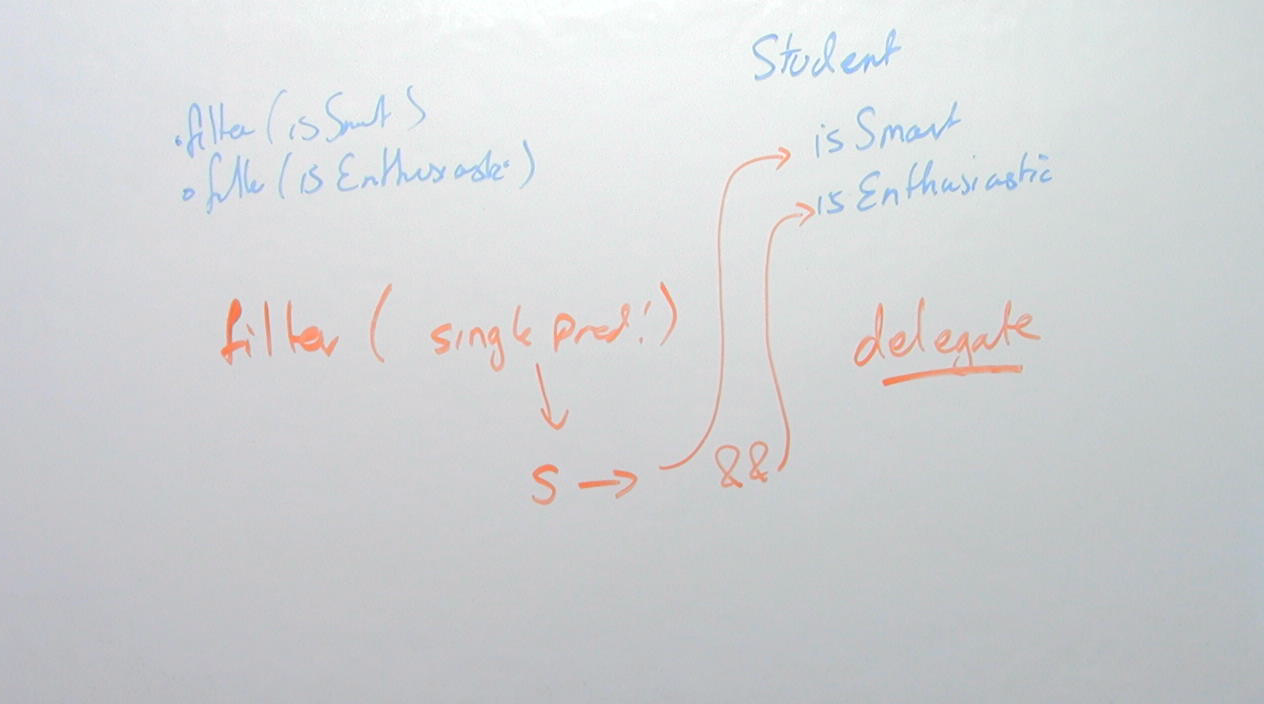 Student
.filter(isSmart)
.filter(isEnthusiastic)
isSmart
isEnthusiastic
filter( single pred! )
delegate
S → &&